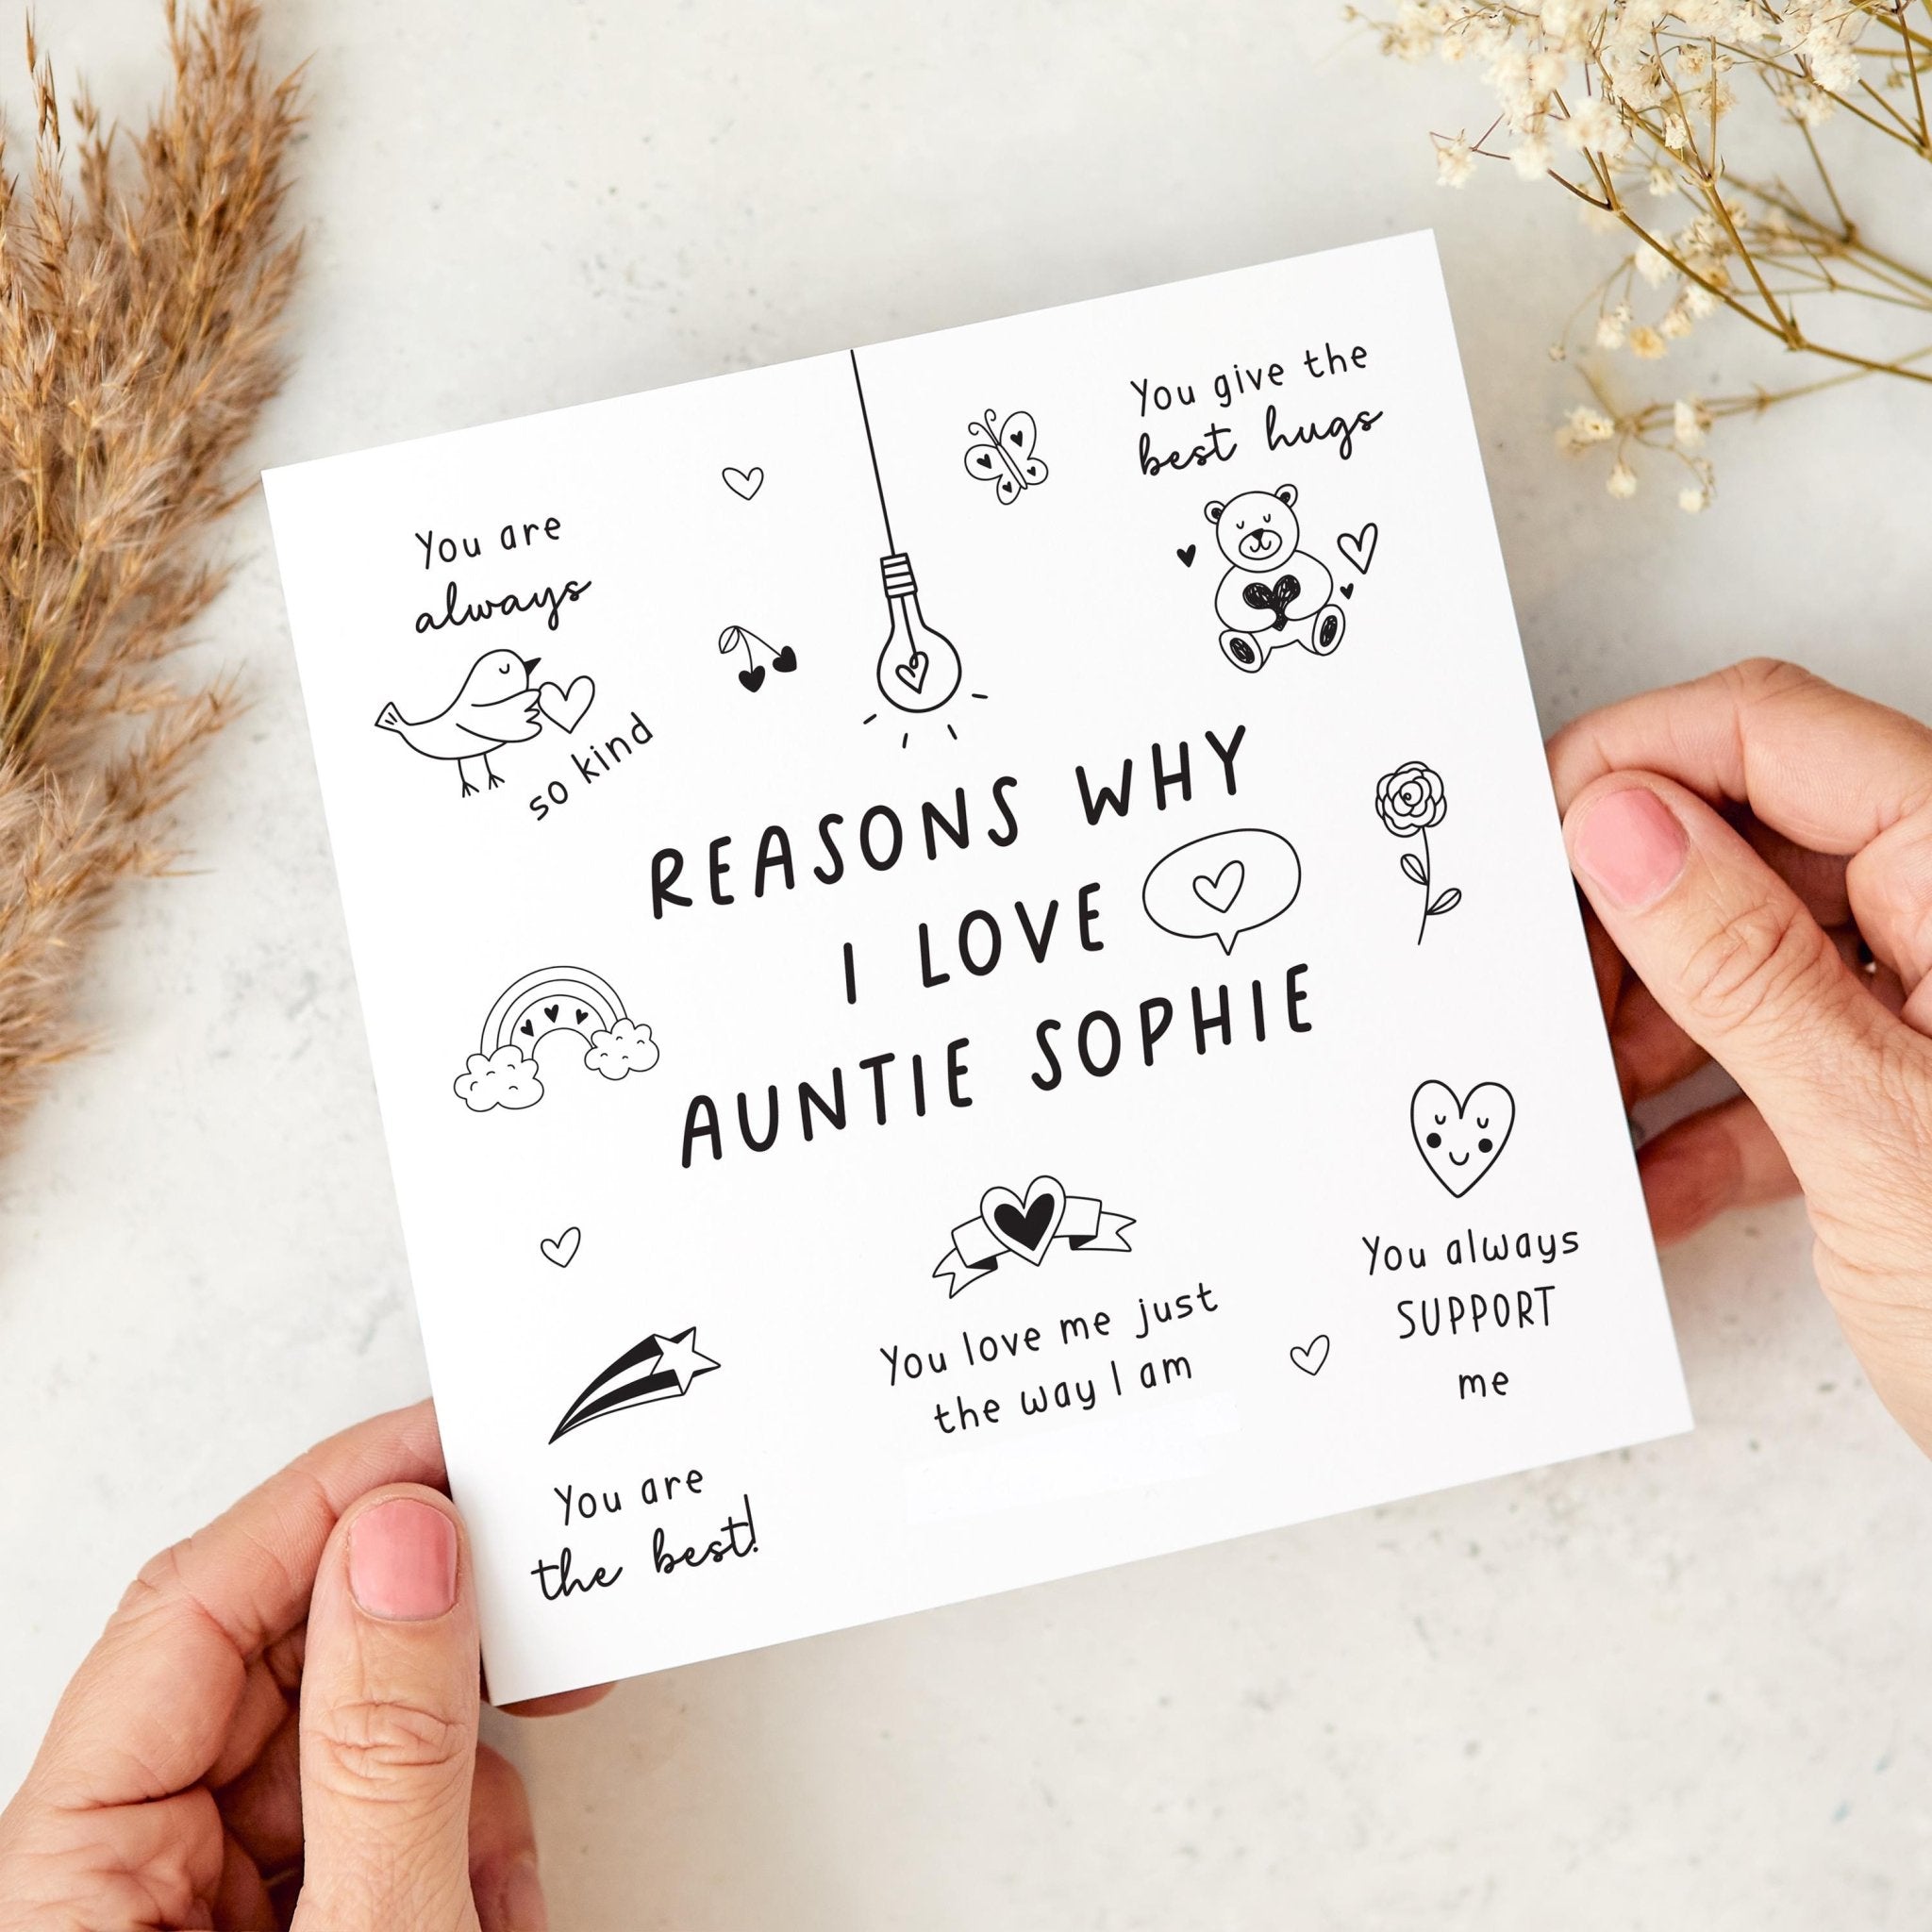 You are
always
so kind
You give the
best hugs
REASONS WHY
I LOVE
AUNTIE SOPHIE
You are
the best!
You love me just
the way I am
You always
SUPPORT
me